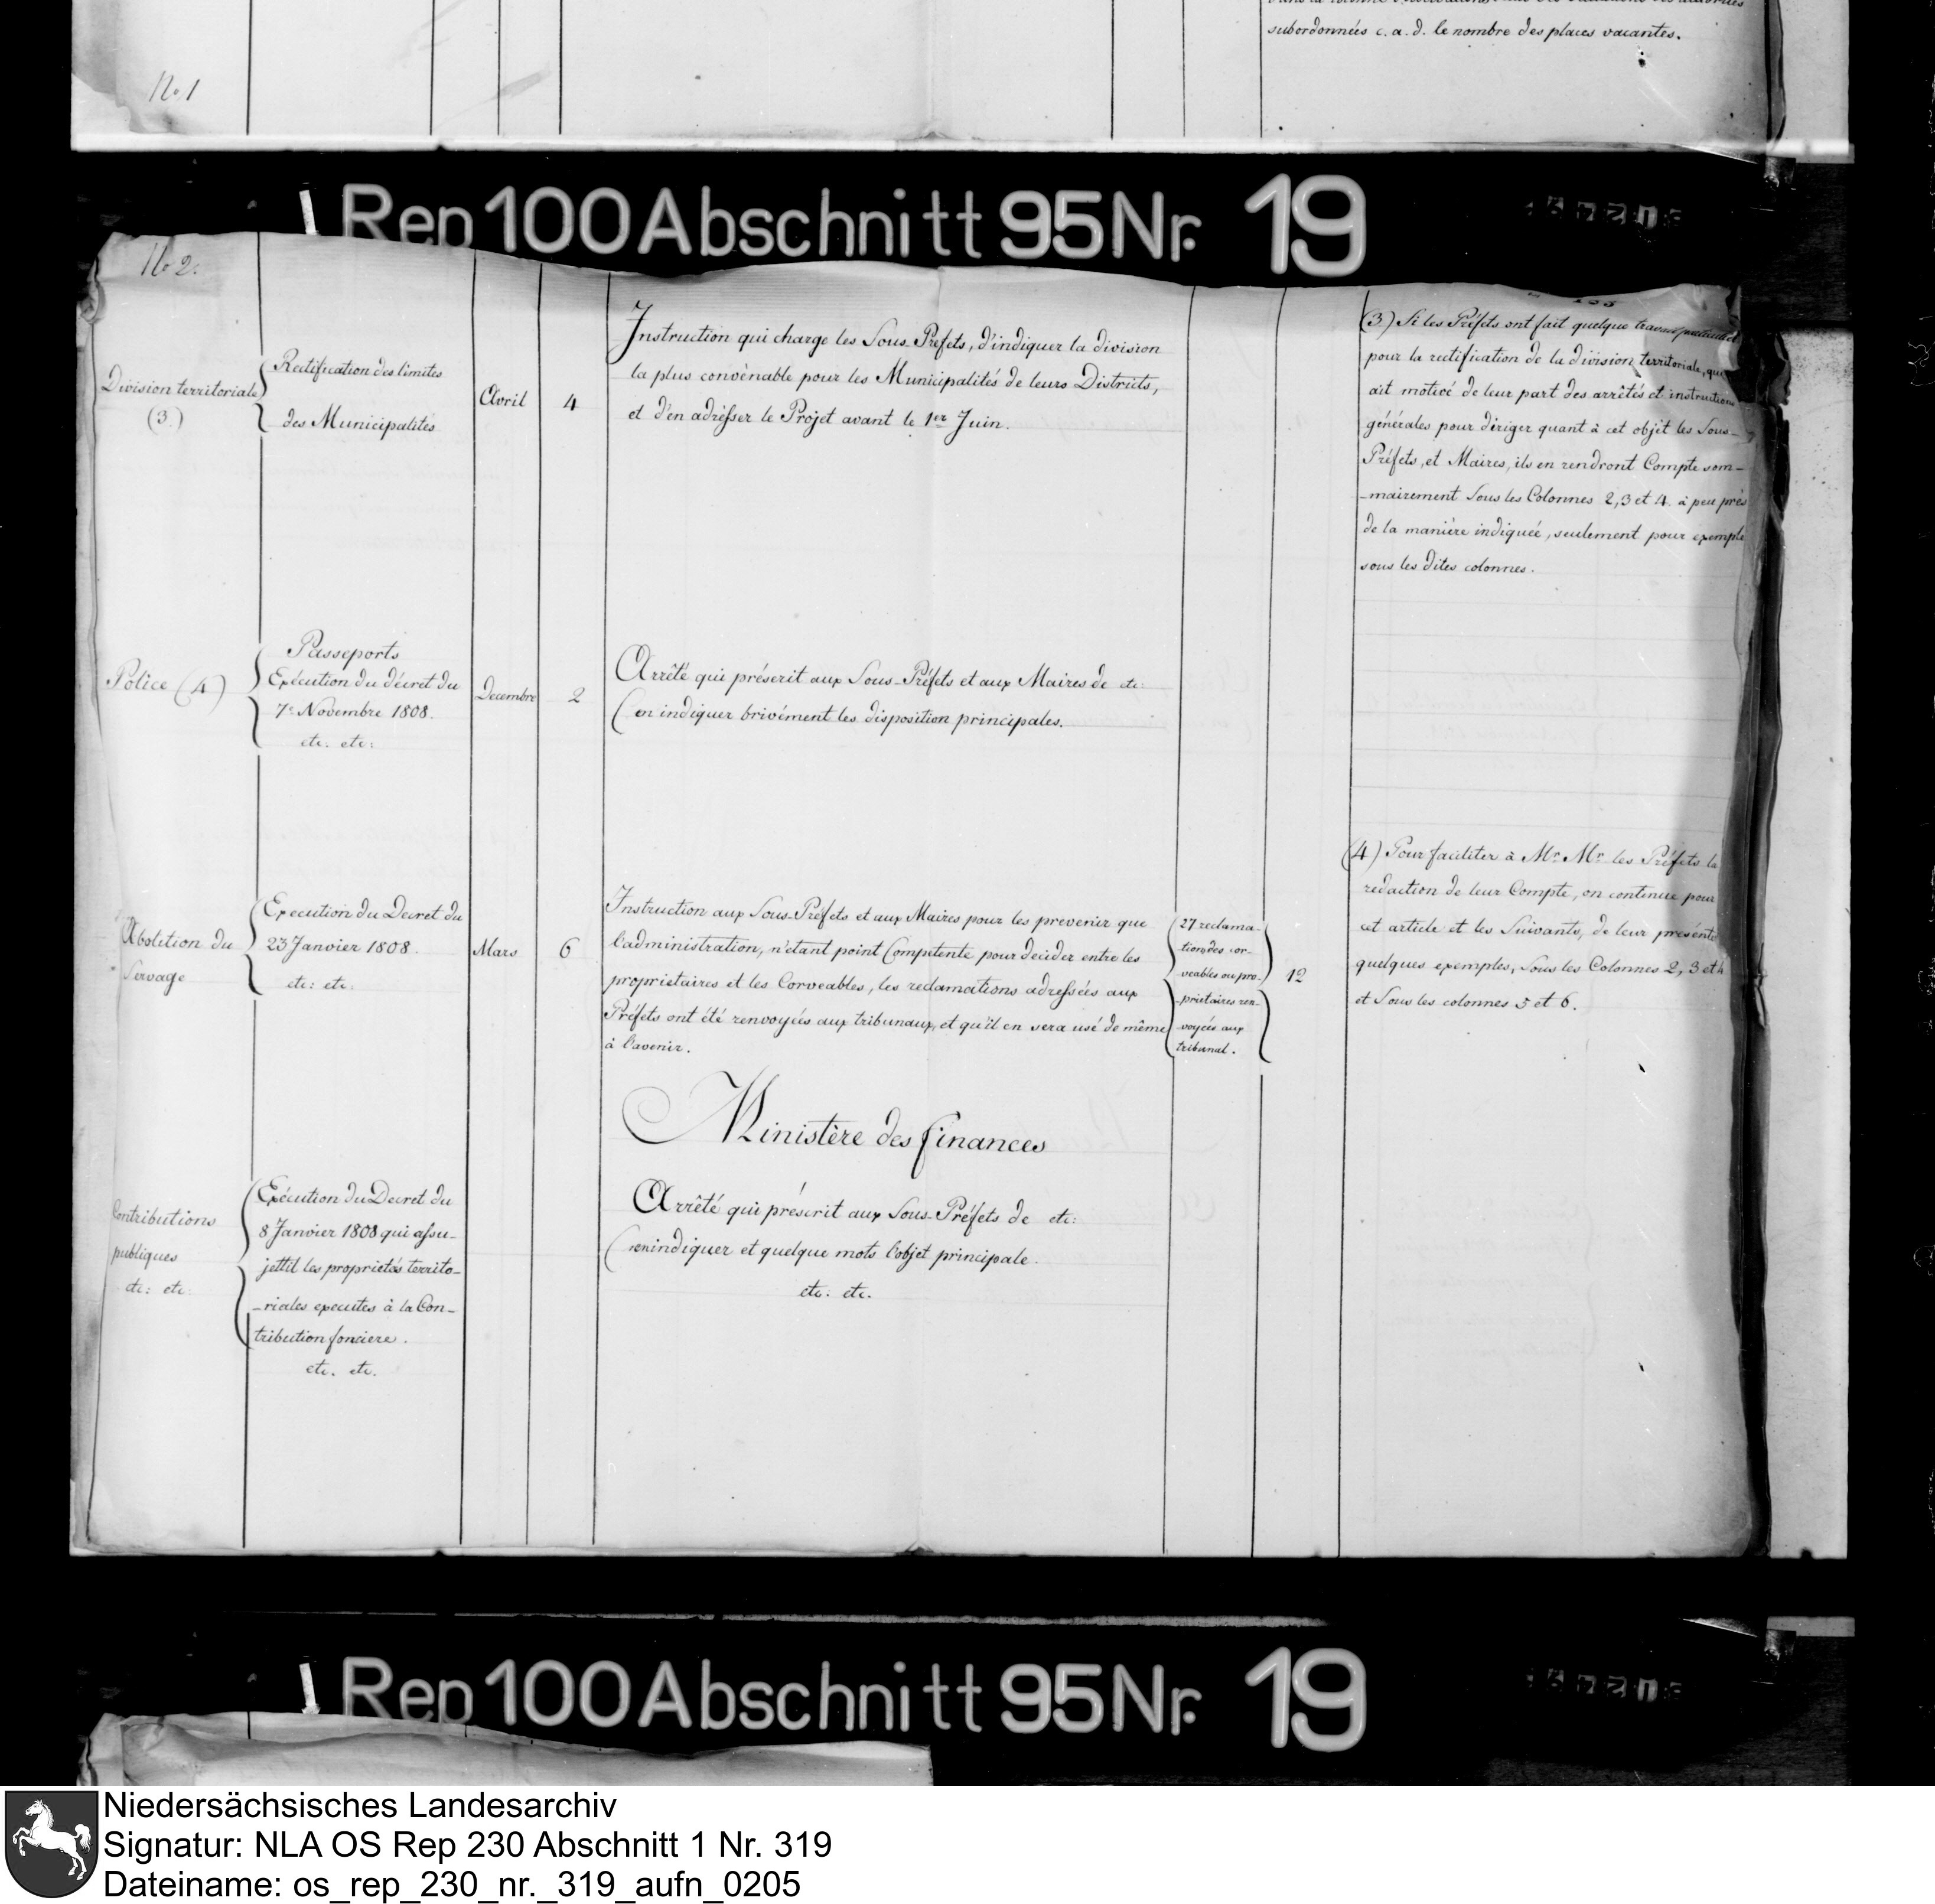 subordonnées c. a. d. le nombre des places vacantes.
No. 1
Rep 100 Abschnitt 95 Nr. 19
No 2.
Division territoriale
(3.)
Rectification des limites
des Municipalités
Avril
4
Instruction qui charge les Sous-Préfets, d'indiquer la division
la plus convènable pour les Municipalités de leurs Districts,
et d'en adrésser le Projet avant le 1er Juin.
(3.) Si les Préfets ont fait quelque travail
pour la rectification de la division territoriale, qui
ait motivé de leur part des arrêtés et instructions
générales pour diriger quant à cet objet les Sous-
Préfets, et Maires, ils en rendront Compte som-
-mairement Sous les Colonnes 2, 3 et 4. à peu près
de la manière indiquée, seulement pour exemple
sous les dites colonnes.
Police (4)
Passeports
Exécution du décret du
7e Novembre 1808.
etc. etc:
Decembre
2
Arrêté qui préscrit aux Sous-Préfets et aux Maires de etc:
(en indiquer brivément les disposition principales.
(4) Pour faciliter à Mr. Mr. les Préfets la
redaction de leur Compte, on continue pour
cet article et les Suivants, de leur présenter
quelques exemples, Sous les Colonnes 2, 3 et 4
et Sous les colonnes 5 et 6.
Abolition du
Servage
Execution du Decret du
23 Janvier 1808.
etc: etc.
Mars
6
Instruction aux Sous-Préfets et aux Maires pour les prevenir que
l'administration, n'étant point Competente pour decider entre les
proprietaires et les Corveables, les reclamations adressées aux
Préfets ont été renvoyées aux tribunaux, et qu'il en sera usé de même
à l'avenir.
27 reclama-
tions des cor-
veables ou pro-
-prietaires ren-
voyées aux
tribunal.
12
Ministère des finances
Contributions
publiques
etc: etc.
Exécution du Decret du
8 Janvier 1808 qui assu-
jettit les proprietés territo-
-riales exemtes à la Con-
tribution fonciere.
etc. etc.
Arrêté qui préscrit aux Sous-Préfets de etc:
indiquer et quelque mots l'objet principale.
etc. etc.
Rep 100 Abschnitt 95 Nr. 19
Niedersächsisches Landesarchiv
Signatur: NLA OS Rep 230 Abschnitt 1 Nr. 319
Dateiname: os_rep_230_nr._319_aufn_0205